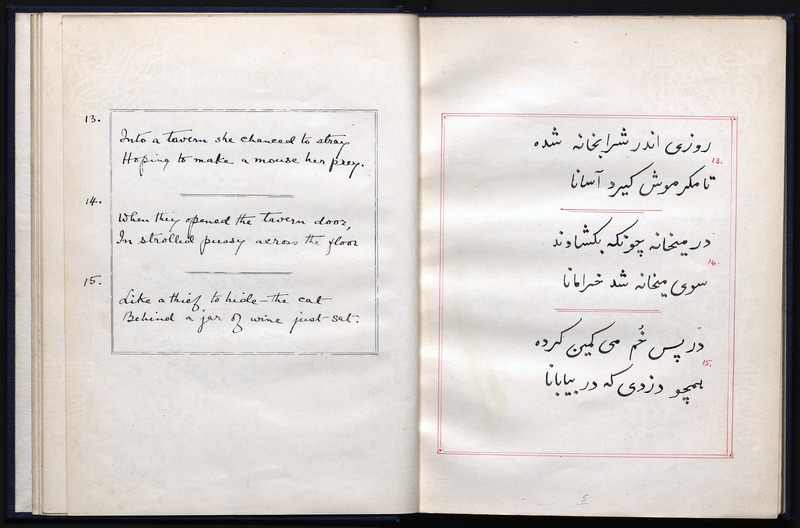 13.
Into a tavern she chanced to stray
Hoping to make a mouse her prey.
14.
When they opened the tavern door,
In strolled pussy across the floor
15.
Like a thief to hide – the cat
Behind a jar of wine just sat.
روزی اندر شرابخانه شده
13.
تا مگر موش گیرد آسانا
در میخانه چونکه بگشادند
14.
سوی میخانه شد خرامانا
در پس خُم می کمین کرده
15.
همچو دزدی که در بیابانا
5